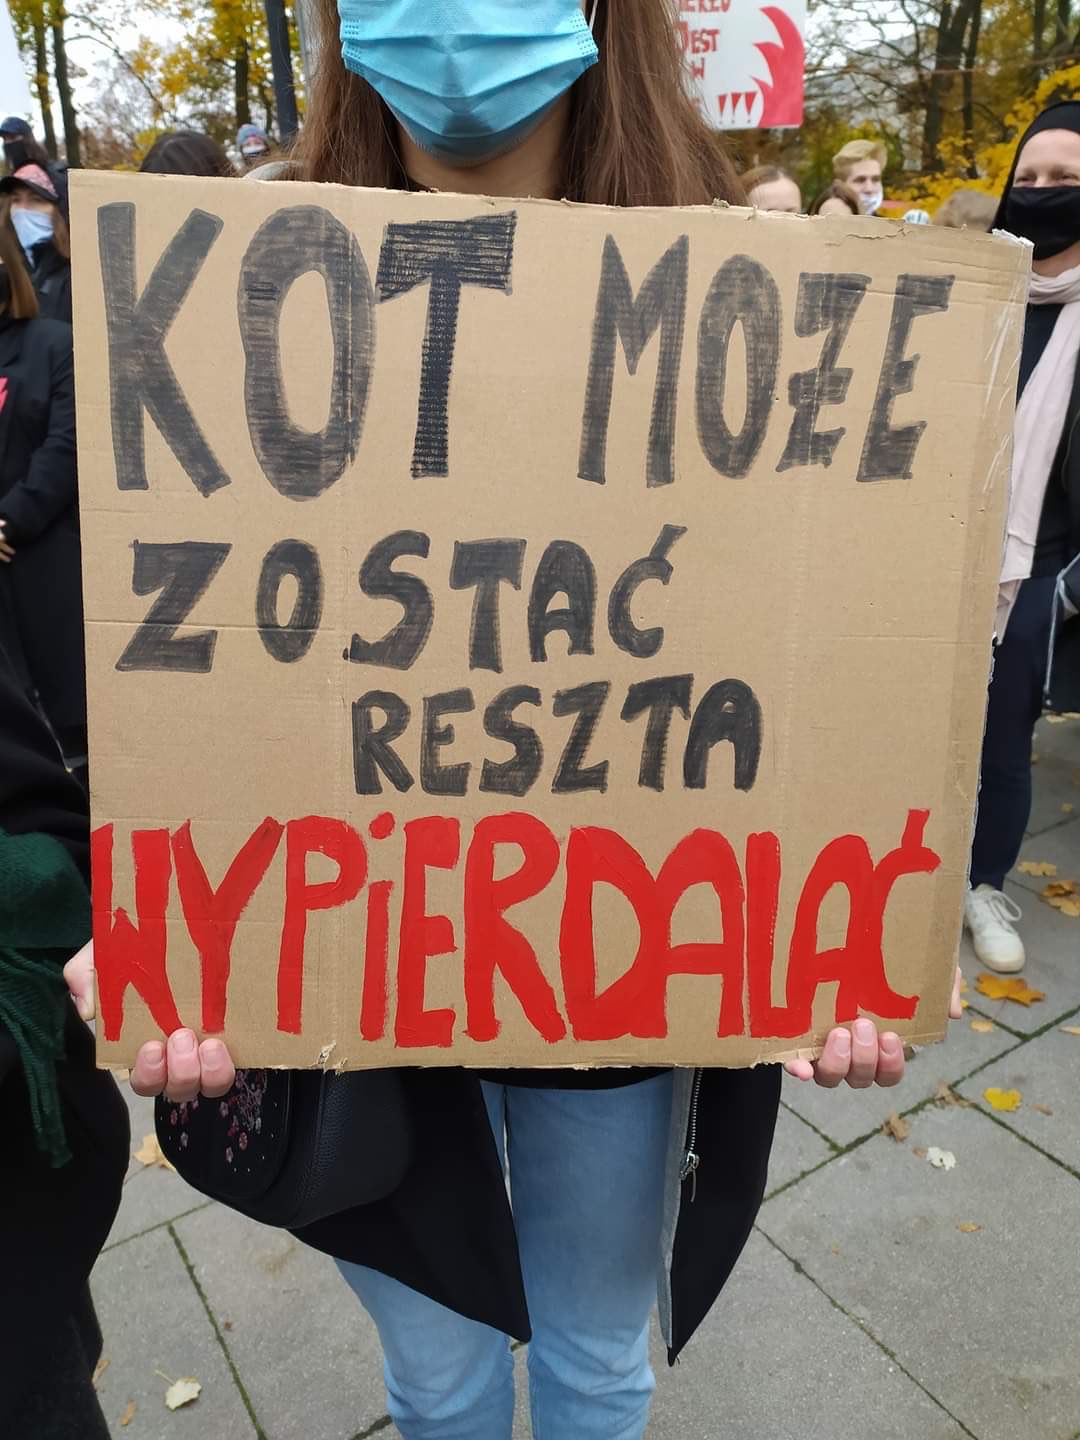 KOT MOŻE
ZOSTAĆ
RESZTA
WYPIERDALAĆ
JEST